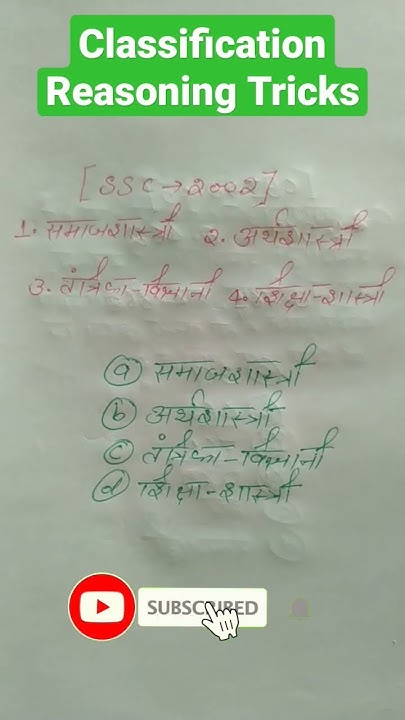 Classification
Reasoning Tricks
[SSC→2002]
1. समाजशास्त्री 2. अर्थशास्त्री
3. तंत्रिका-विज्ञानी 4. शिक्षा-शास्त्री
(a) समाजशास्त्री
(b) अर्थशास्त्री
(c) तंत्रिका-विज्ञानी
(d) शिक्षा-शास्त्री
SUBSCRIBED